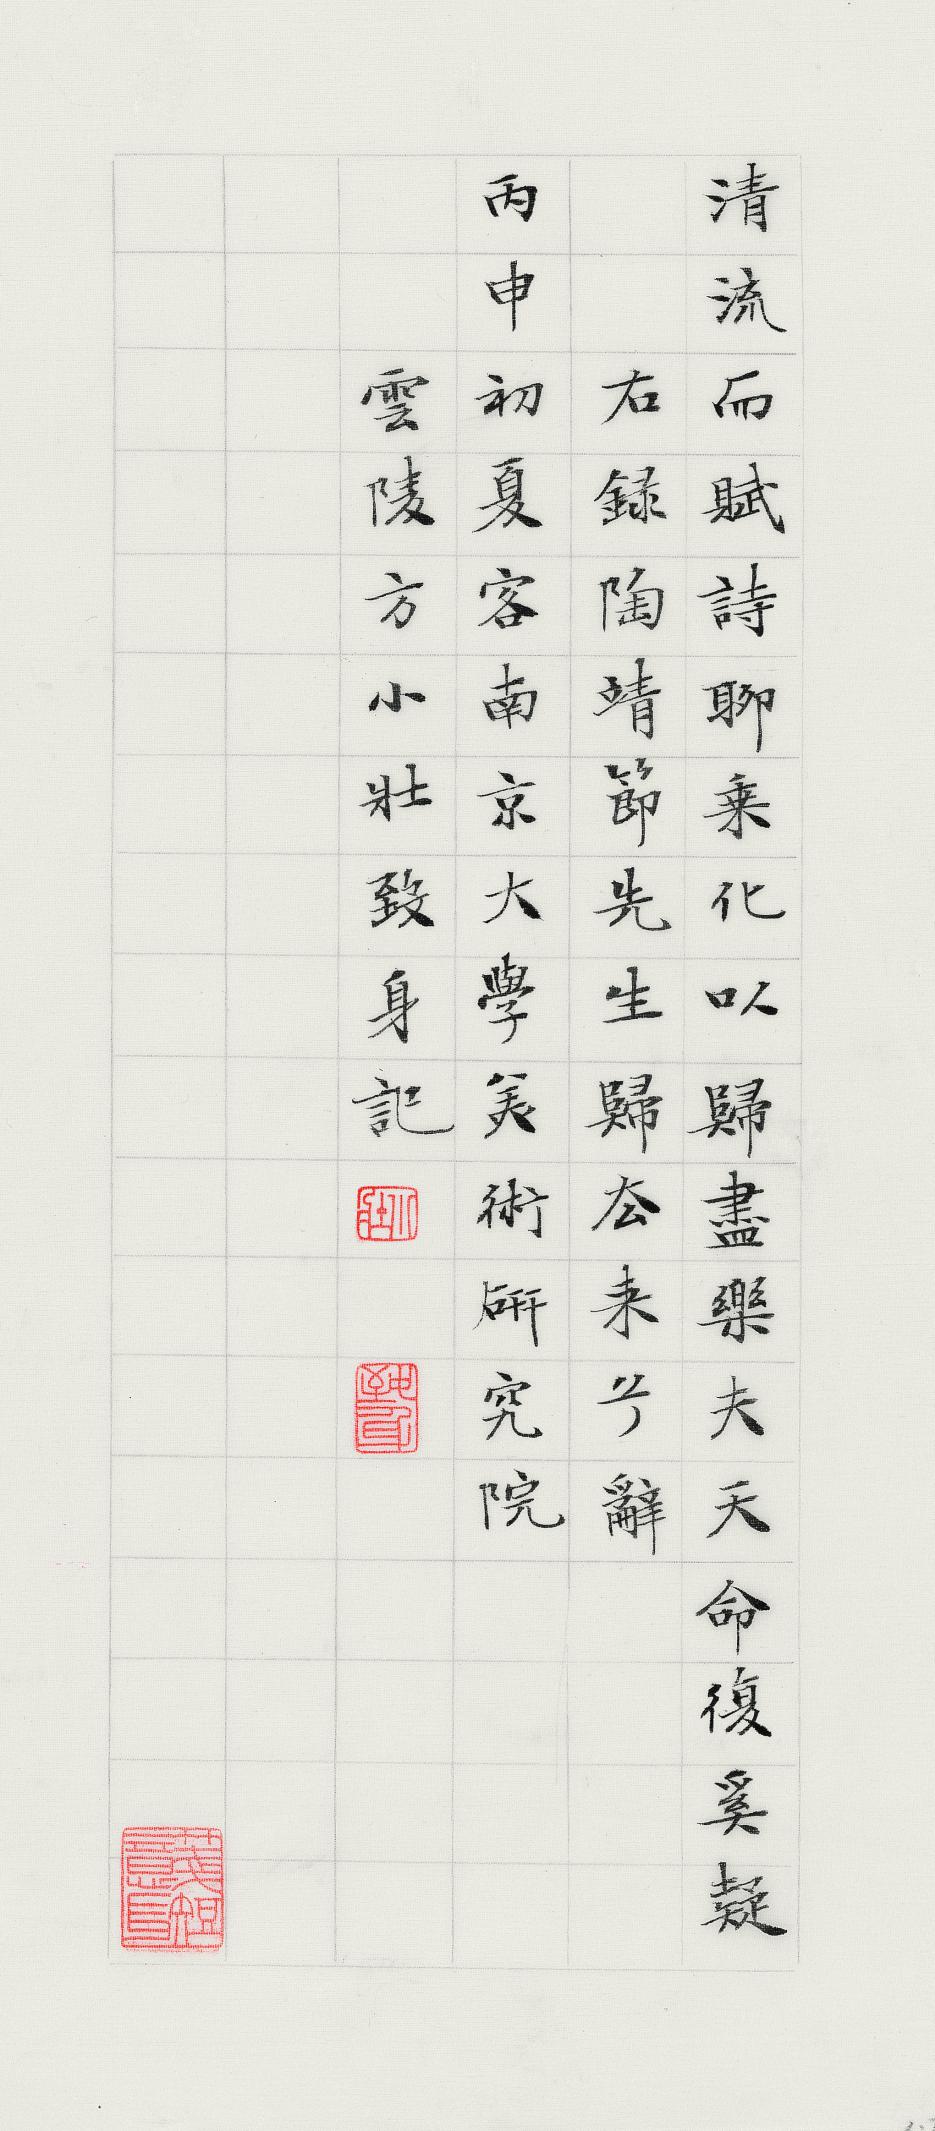 清流而賦詩聊乘化以歸盡樂夫天命復奚疑
右録陶靖節先生歸去来兮辭
丙申初夏客南京大學美術研究院
雲陵方小壯致身記
小壯